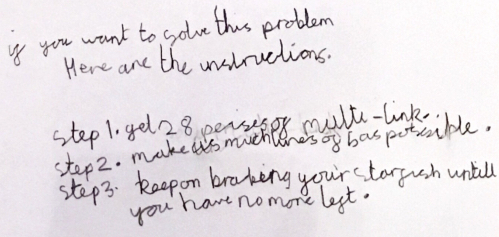 if you want to solve this problem
Here are the instructions.
step 1. get 28 peises of multi-link.
step 2. make as much lines of 6 as possible.
step 3. keep on braking your starfish untill
you have no more left.